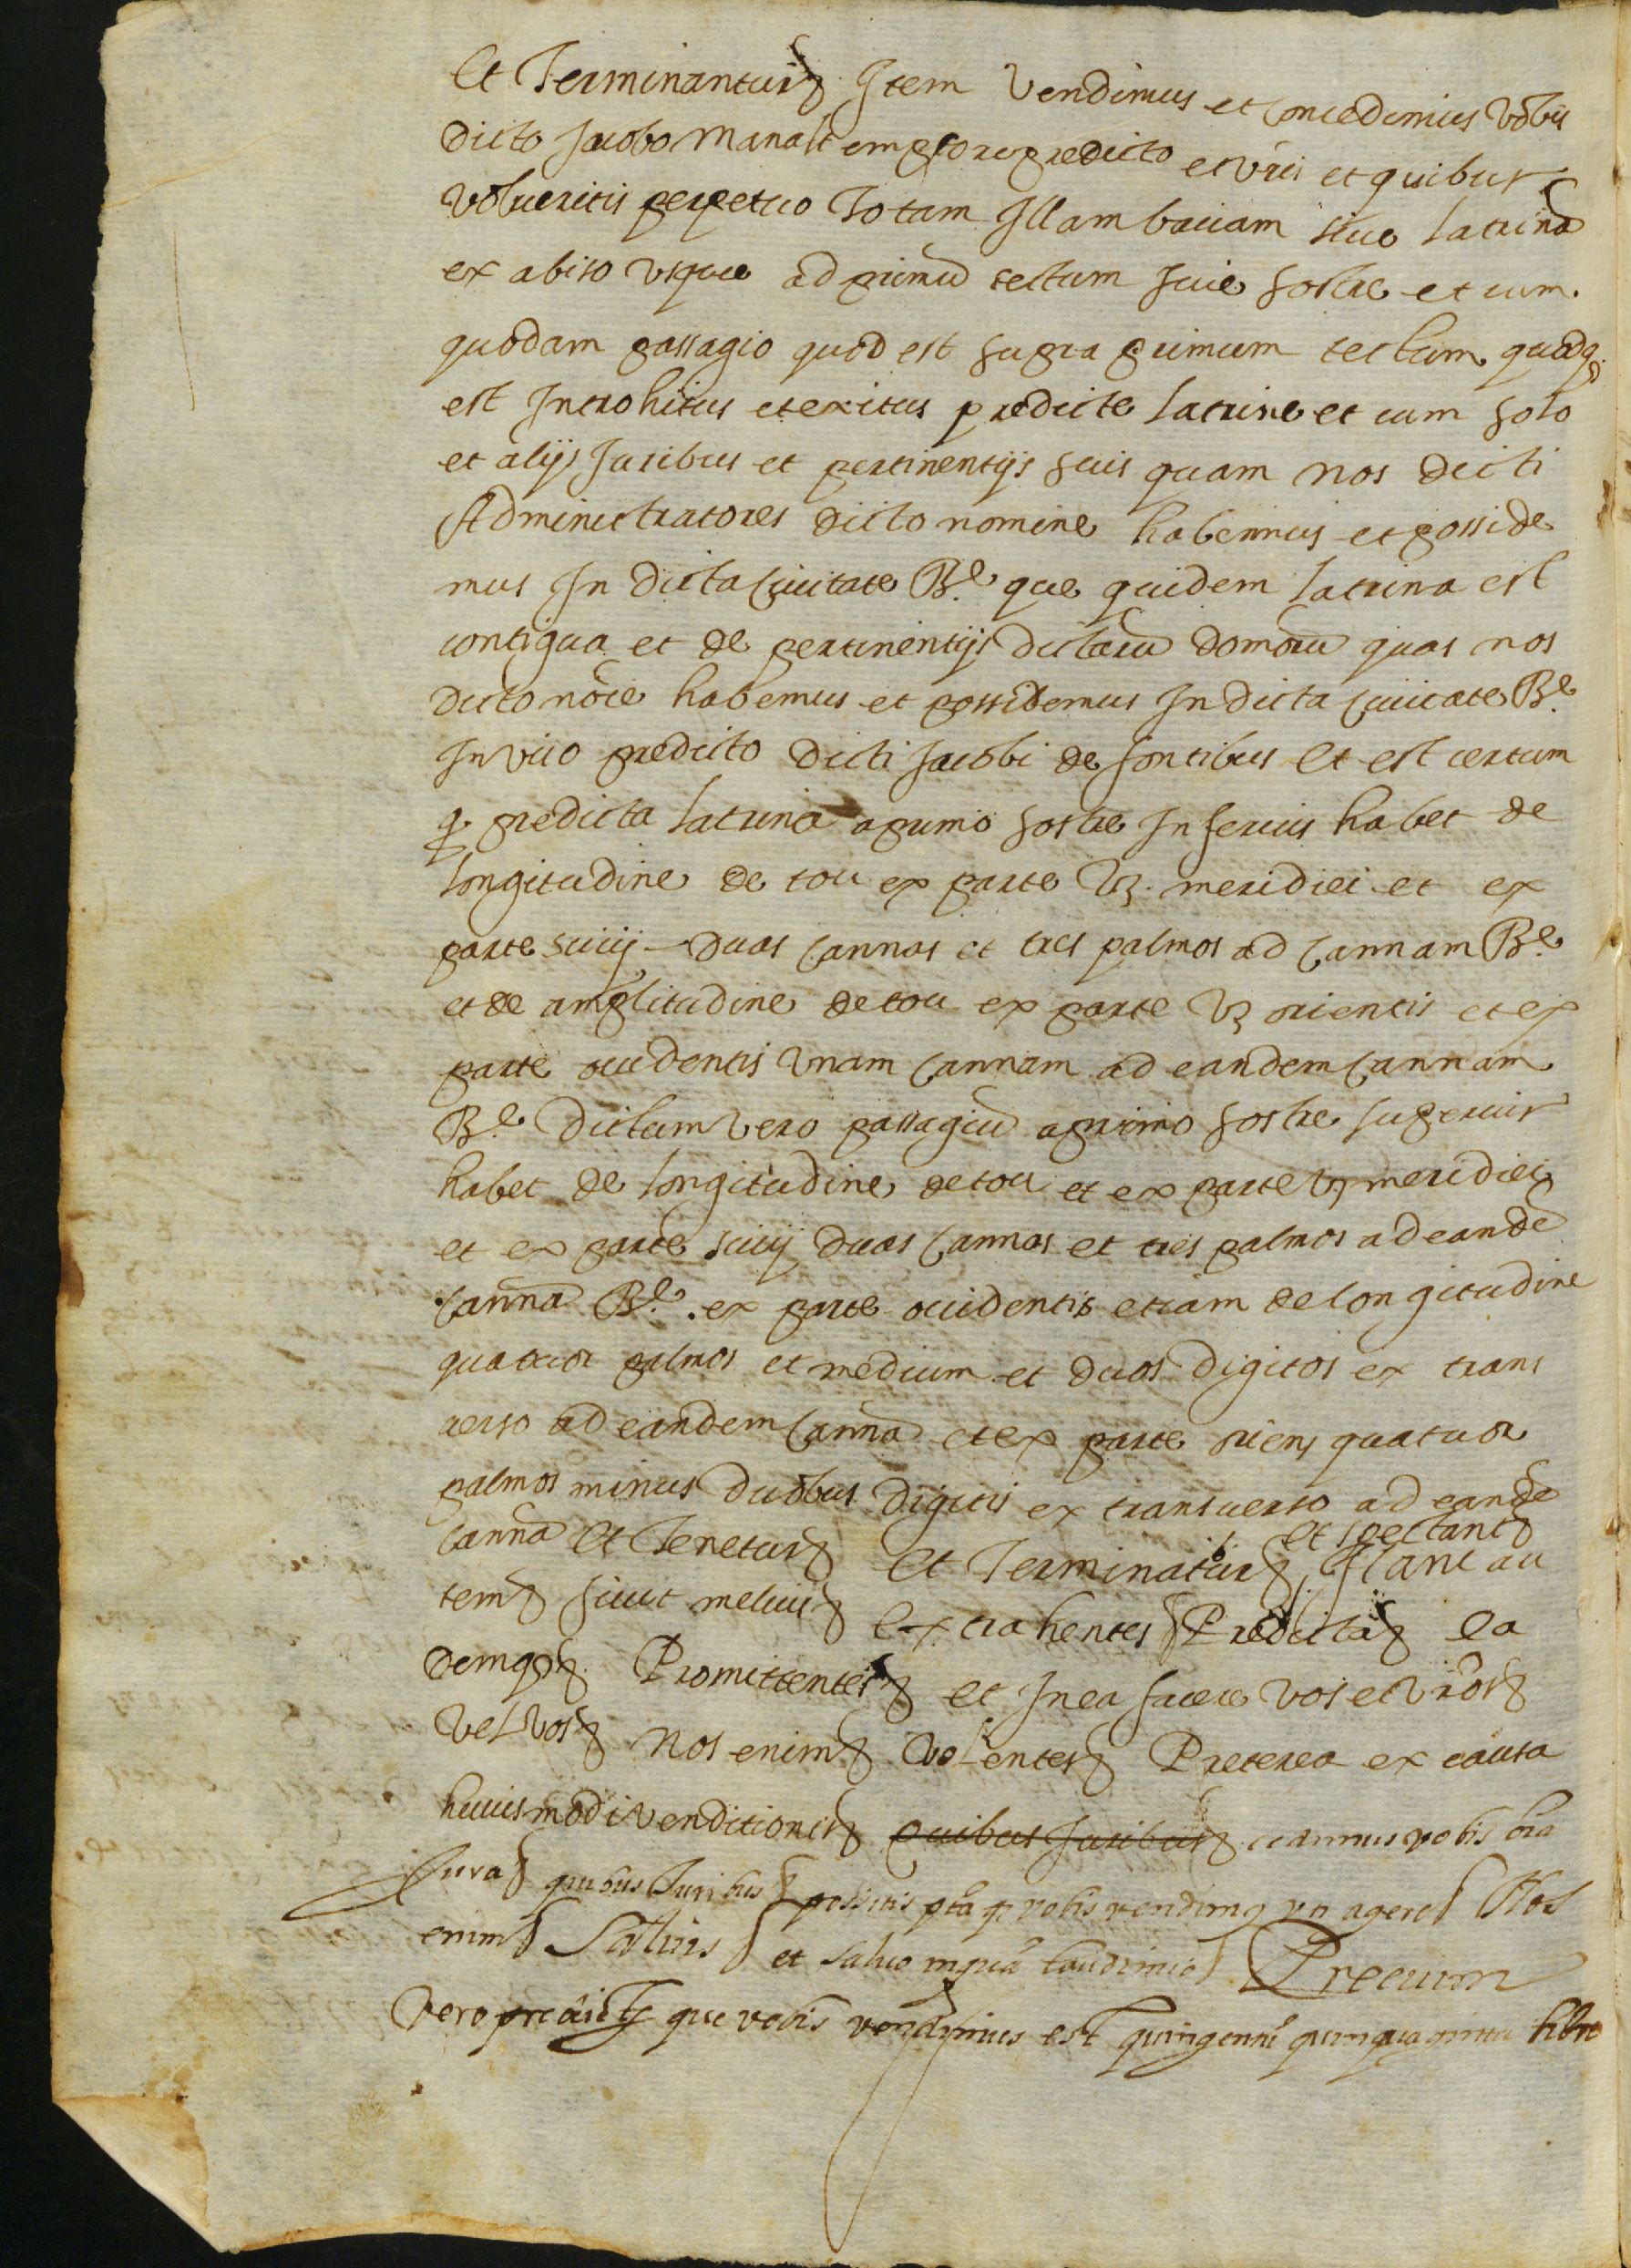 Et Terminantur Item Vendimus et Concedimus Vobis
dicto Jacobo Manalt emptore predicto et vris et quibus
volueritis perpetuo Totam Illam bauam siue latrinā
ex abiso vsque ad primū tectum siue sostre et cum
quodam passagio quod est supra primum tectum quodq
est Introhitus et exitus predicte latrine et cum solo
et alijs Juribus et pertinentijs suis quam nos dicti
Administratores dicto nomine habemus et posside
mus In dicta Ciuitate Bē que quidem latrina est
contigua et de pertinentijs dictarū domorū quas nos
dicto nōie habemus et possidemus In dicta Ciuitate Bē
In vico predicto dicti Jacobi de fontibus Et est certum
q predicta latrina a primo sostre Inferius habet de
longitudine de tou ex parte vz meridiei et ex
parte scirij duas Cannas et tres palmos ad Cannam Bē
et de amplitudine de tou ex parte vz orientis et ex
parte occidentis vnam Cannam ad eandem Cannam
Bē dictum vero passagiū a primo sostre superius
habet de longitudine de tou et ex parte vz meridiei
et ex parte scirij duas Cannas et tres palmos ad eandē
Cannā Bē ex parte occidentis etiam de longitudine
quatuor palmos et medium et duos digitos ex trans
uerso ad eandem Cannā et ex parte oriens quatuor
palmos minus duobus digitis ex transuerso ad eandē
Cannā Et Tenetur Et Terminatur et spectant Hanc au
tem sicut melius Extrahentes Predicta Ea
demq Promittentes et In ea facere vos et vrōs
Vel vos Nos enim Volentes Preterea ex causa
huiusmodi Venditionis Quibus Juribus cedimus vobis oīa
Jura quibus Juribus possitis pta q vobis vendimus agere Nos
enim Saluis et saluo laudimio Precium
vero predict que vobis vendimus est quingente quinquaginta libre